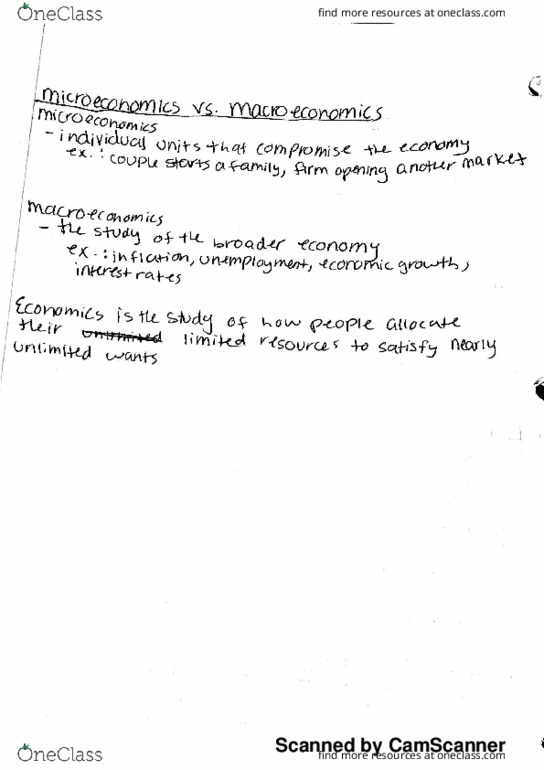 OneClass
find more resources at oneclass.com
microeconomics vs. macroeconomics
microeconomics
- individual units that compromise the economy
ex.: couple starts a family, firm opening another market
macroeconomics
- the study of the broader economy
ex.: inflation, unemployment, economic growth,
interest rates
Economics is the study of how people allocate
their unlimited limited resources to satisfy nearly
unlimited wants
Scanned by CamScanner
OneClass
find more resources at oneclass.com